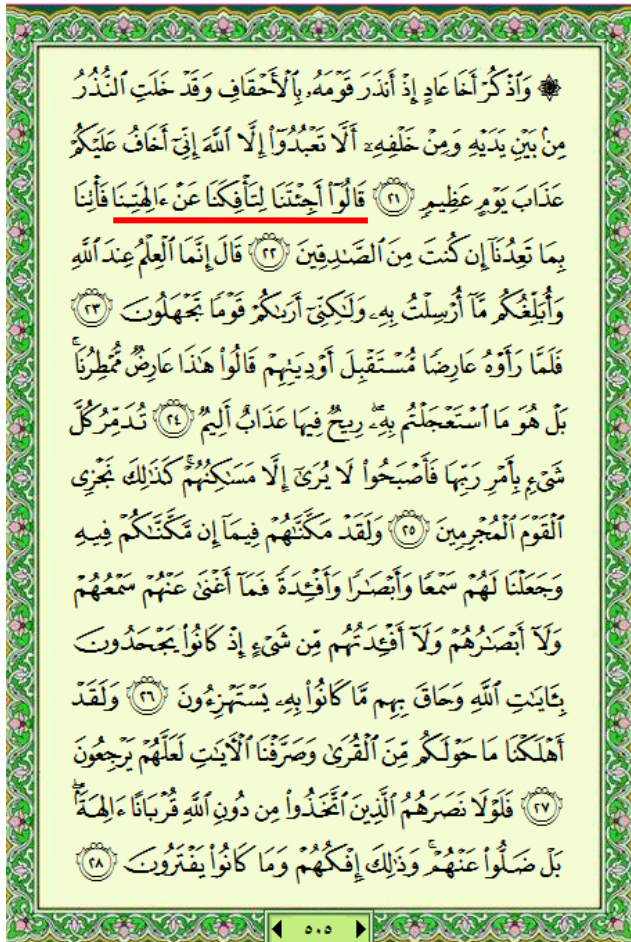 ۞ وَٱذْكُرْ أَخَا عَادٍ إِذْ أَنذَرَ قَوْمَهُۥ بِٱلْأَحْقَافِ وَقَدْ خَلَتِ ٱلنُّذُرُ
مِنۢ بَيْنِ يَدَيْهِ وَمِنْ خَلْفِهِۦٓ أَلَّا تَعْبُدُوٓا۟ إِلَّا ٱللَّهَ إِنِّىٓ أَخَافُ عَلَيْكُمْ
عَذَابَ يَوْمٍ عَظِيمٍ ٢١ قَالُوٓا۟ أَجِئْتَنَا لِتَأْفِكَنَا عَنْ ءَالِهَتِنَا فَأْتِنَا
بِمَا تَعِدُنَآ إِن كُنتَ مِنَ ٱلصَّـٰدِقِينَ ٢٢ قَالَ إِنَّمَا ٱلْعِلْمُ عِندَ ٱللَّهِ
وَأُبَلِّغُكُم مَّآ أُرْسِلْتُ بِهِۦ وَلَـٰكِنِّىٓ أَرَىٰكُمْ قَوْمًا تَجْهَلُونَ ٢٣
فَلَمَّا رَأَوْهُ عَارِضًا مُّسْتَقْبِلَ أَوْدِيَتِهِمْ قَالُوا۟ هَـٰذَا عَارِضٌ مُّمْطِرُنَا ۚ
بَلْ هُوَ مَا ٱسْتَعْجَلْتُم بِهِۦ ۖ رِيحٌ فِيهَا عَذَابٌ أَلِيمٌ ٢٤ تُدَمِّرُ كُلَّ
شَىْءٍۭ بِأَمْرِ رَبِّهَا فَأَصْبَحُوا۟ لَا يُرَىٰٓ إِلَّا مَسَـٰكِنُهُمْ ۚ كَذَٰلِكَ نَجْزِى
ٱلْقَوْمَ ٱلْمُجْرِمِينَ ٢٥ وَلَقَدْ مَكَّنَّـٰهُمْ فِيمَآ إِن مَّكَّنَّـٰكُمْ فِيهِ
وَجَعَلْنَا لَهُمْ سَمْعًا وَأَبْصَـٰرًا وَأَفْـِٔدَةً فَمَآ أَغْنَىٰ عَنْهُمْ سَمْعُهُمْ
وَلَآ أَبْصَـٰرُهُمْ وَلَآ أَفْـِٔدَتُهُم مِّن شَىْءٍ إِذْ كَانُوا۟ يَجْحَدُونَ
بِـَٔايَـٰتِ ٱللَّهِ وَحَاقَ بِهِم مَّا كَانُوا۟ بِهِۦ يَسْتَهْزِءُونَ ٢٦ وَلَقَدْ
أَهْلَكْنَا مَا حَوْلَكُم مِّنَ ٱلْقُرَىٰ وَصَرَّفْنَا ٱلْـَٔايَـٰتِ لَعَلَّهُمْ يَرْجِعُونَ
٢٧ فَلَوْلَا نَصَرَهُمُ ٱلَّذِينَ ٱتَّخَذُوا۟ مِن دُونِ ٱللَّهِ قُرْبَانًا ءَالِهَةًۢ ۖ
بَلْ ضَلُّوا۟ عَنْهُمْ ۚ وَذَٰلِكَ إِفْكُهُمْ وَمَا كَانُوا۟ يَفْتَرُونَ ٢٨
٥٠٥